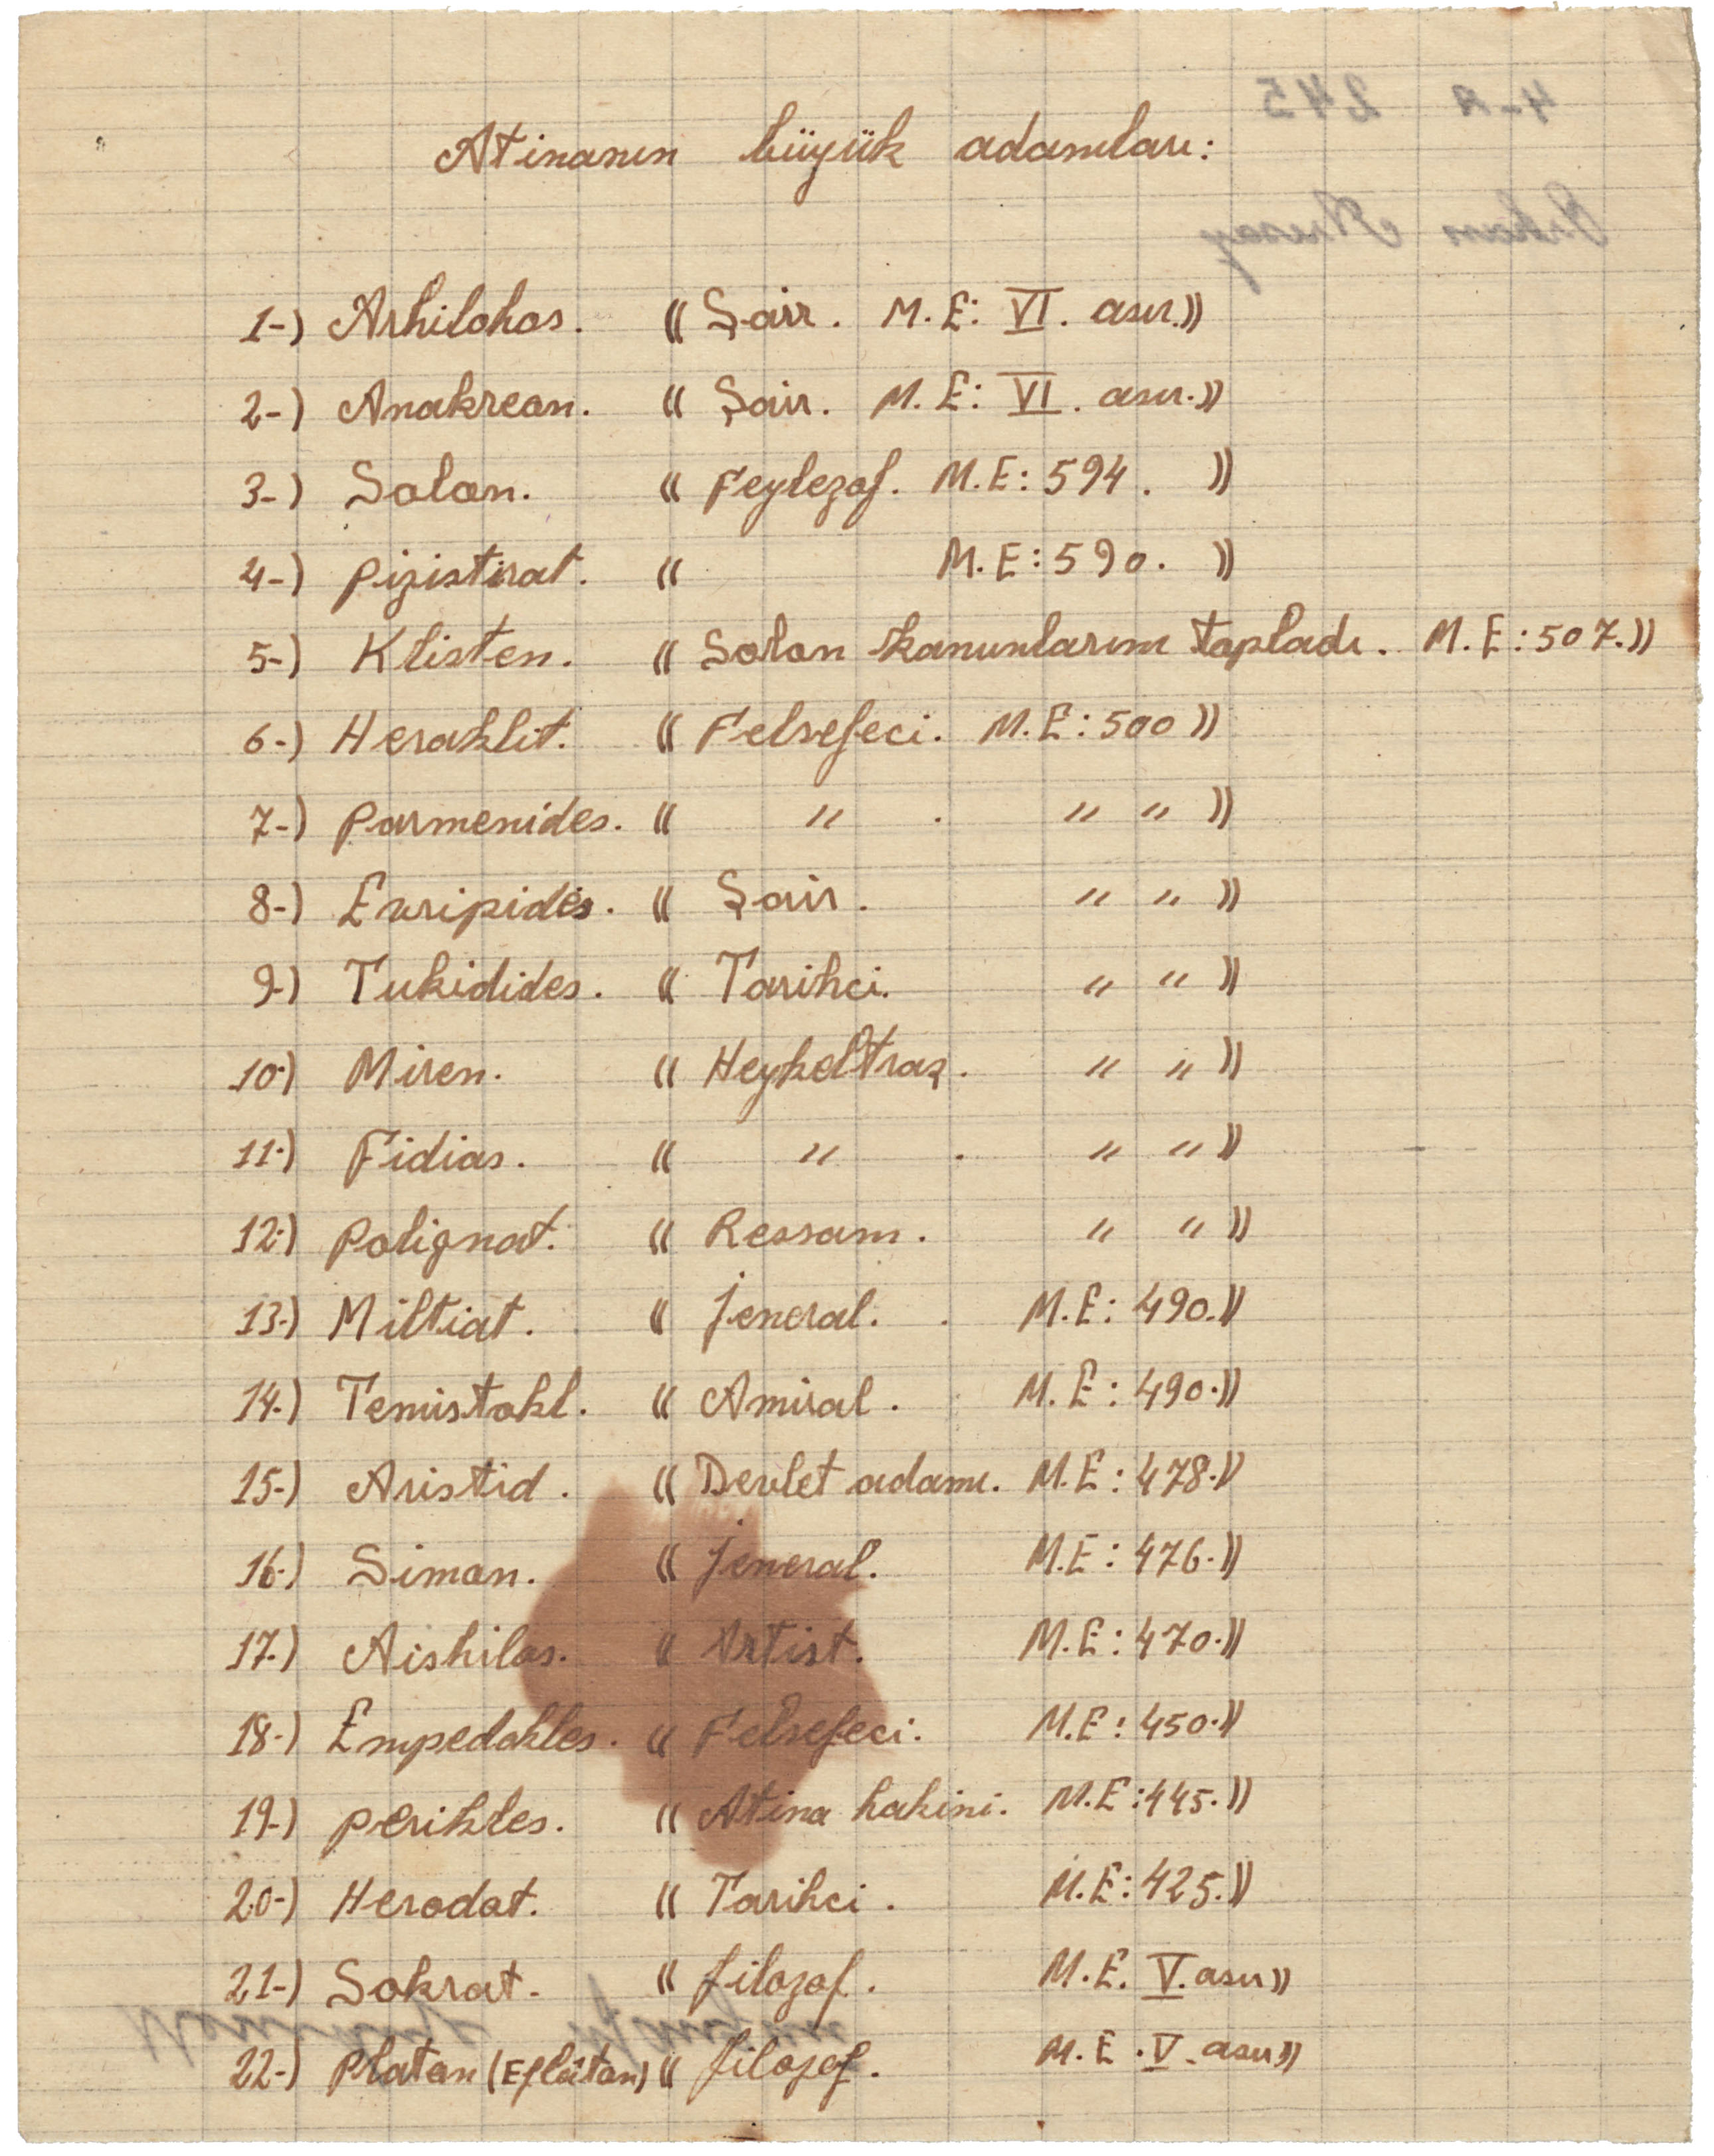 Atinanın büyük adamları:
1-) Arhilohos. (( Şair. M.E: VI. asır.))
2-) Anakreon. (( Şair. M.E: VI. asır.))
3-) Solon. (( Feylezof. M.E: 594. ))
4-) Pizistirat. (( M.E: 590. ))
5-) Klisten. (( Solon kanunlarını topladı. M.E: 507.))
6-) Heraklit. (( Felsefeci. M.E: 500 ))
7-) Parmenides. (( " . " " ))
8-) Euripides. (( Şair. " " ))
9-) Tukidides. (( Tarihci. " " ))
10-) Miren. (( Heykeltraş. " " ))
11-) Fidias. (( " . " " ))
12-) Polignot. (( Ressam. " " ))
13-) Miltiat. (( Jeneral. M.E: 490.))
14-) Temistokl. (( Amiral. M.E: 490.))
15-) Aristid. (( Devlet adamı. M.E: 478.))
16-) Simon. (( Jeneral. M.E: 476.))
17-) Aishilos. (( Artist. M.E: 470.))
18-) Empedokles. (( Felsefeci. M.E: 450.))
19-) Perikles. (( Atina hakimi. M.E: 445.))
20-) Herodot. (( Tarihci. M.E: 425.))
21-) Sokrat. (( filozof. M.E. V. asır))
22-) Platon (Eflâton) (( filozof. M.E. V. asır))
4-A 245
Orhan